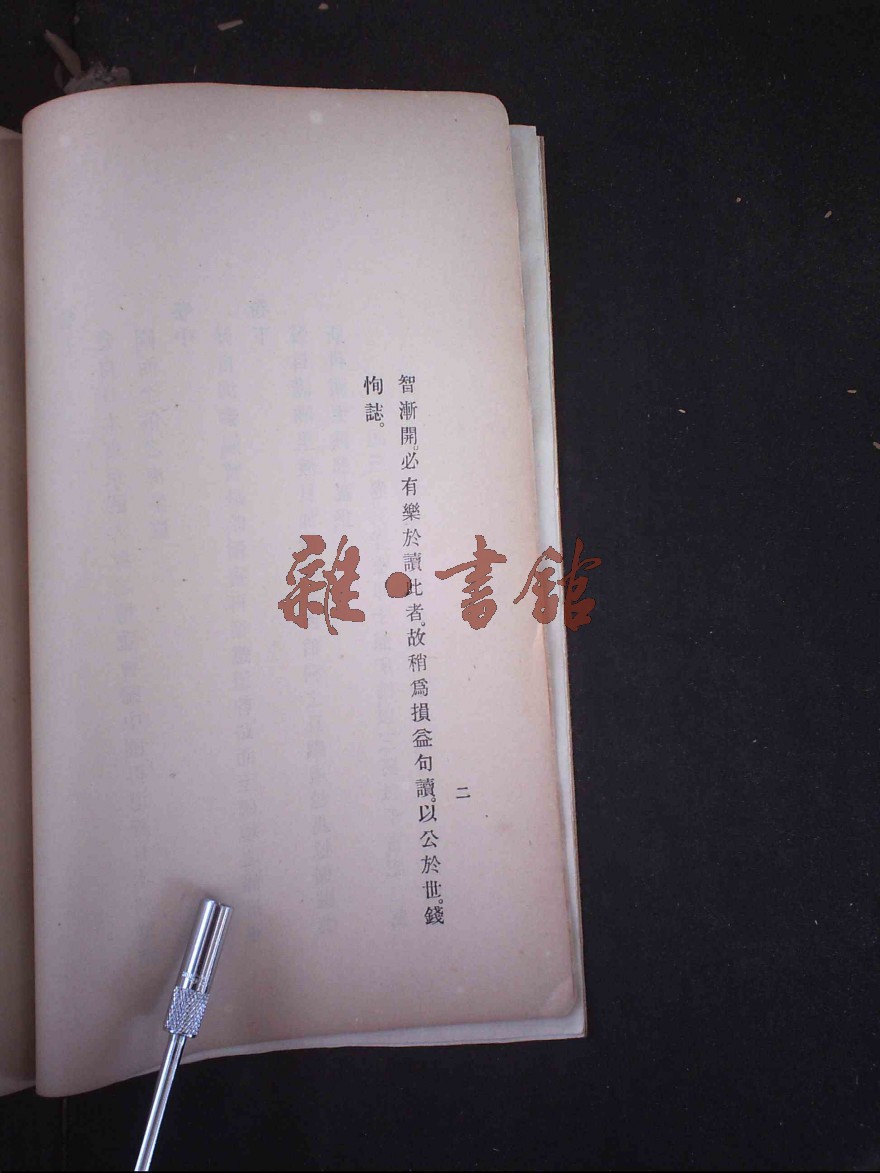 智漸開。必有樂於讀此者。故稍爲損益句讀。以公於世。錢
恂誌。
二
雜·書館